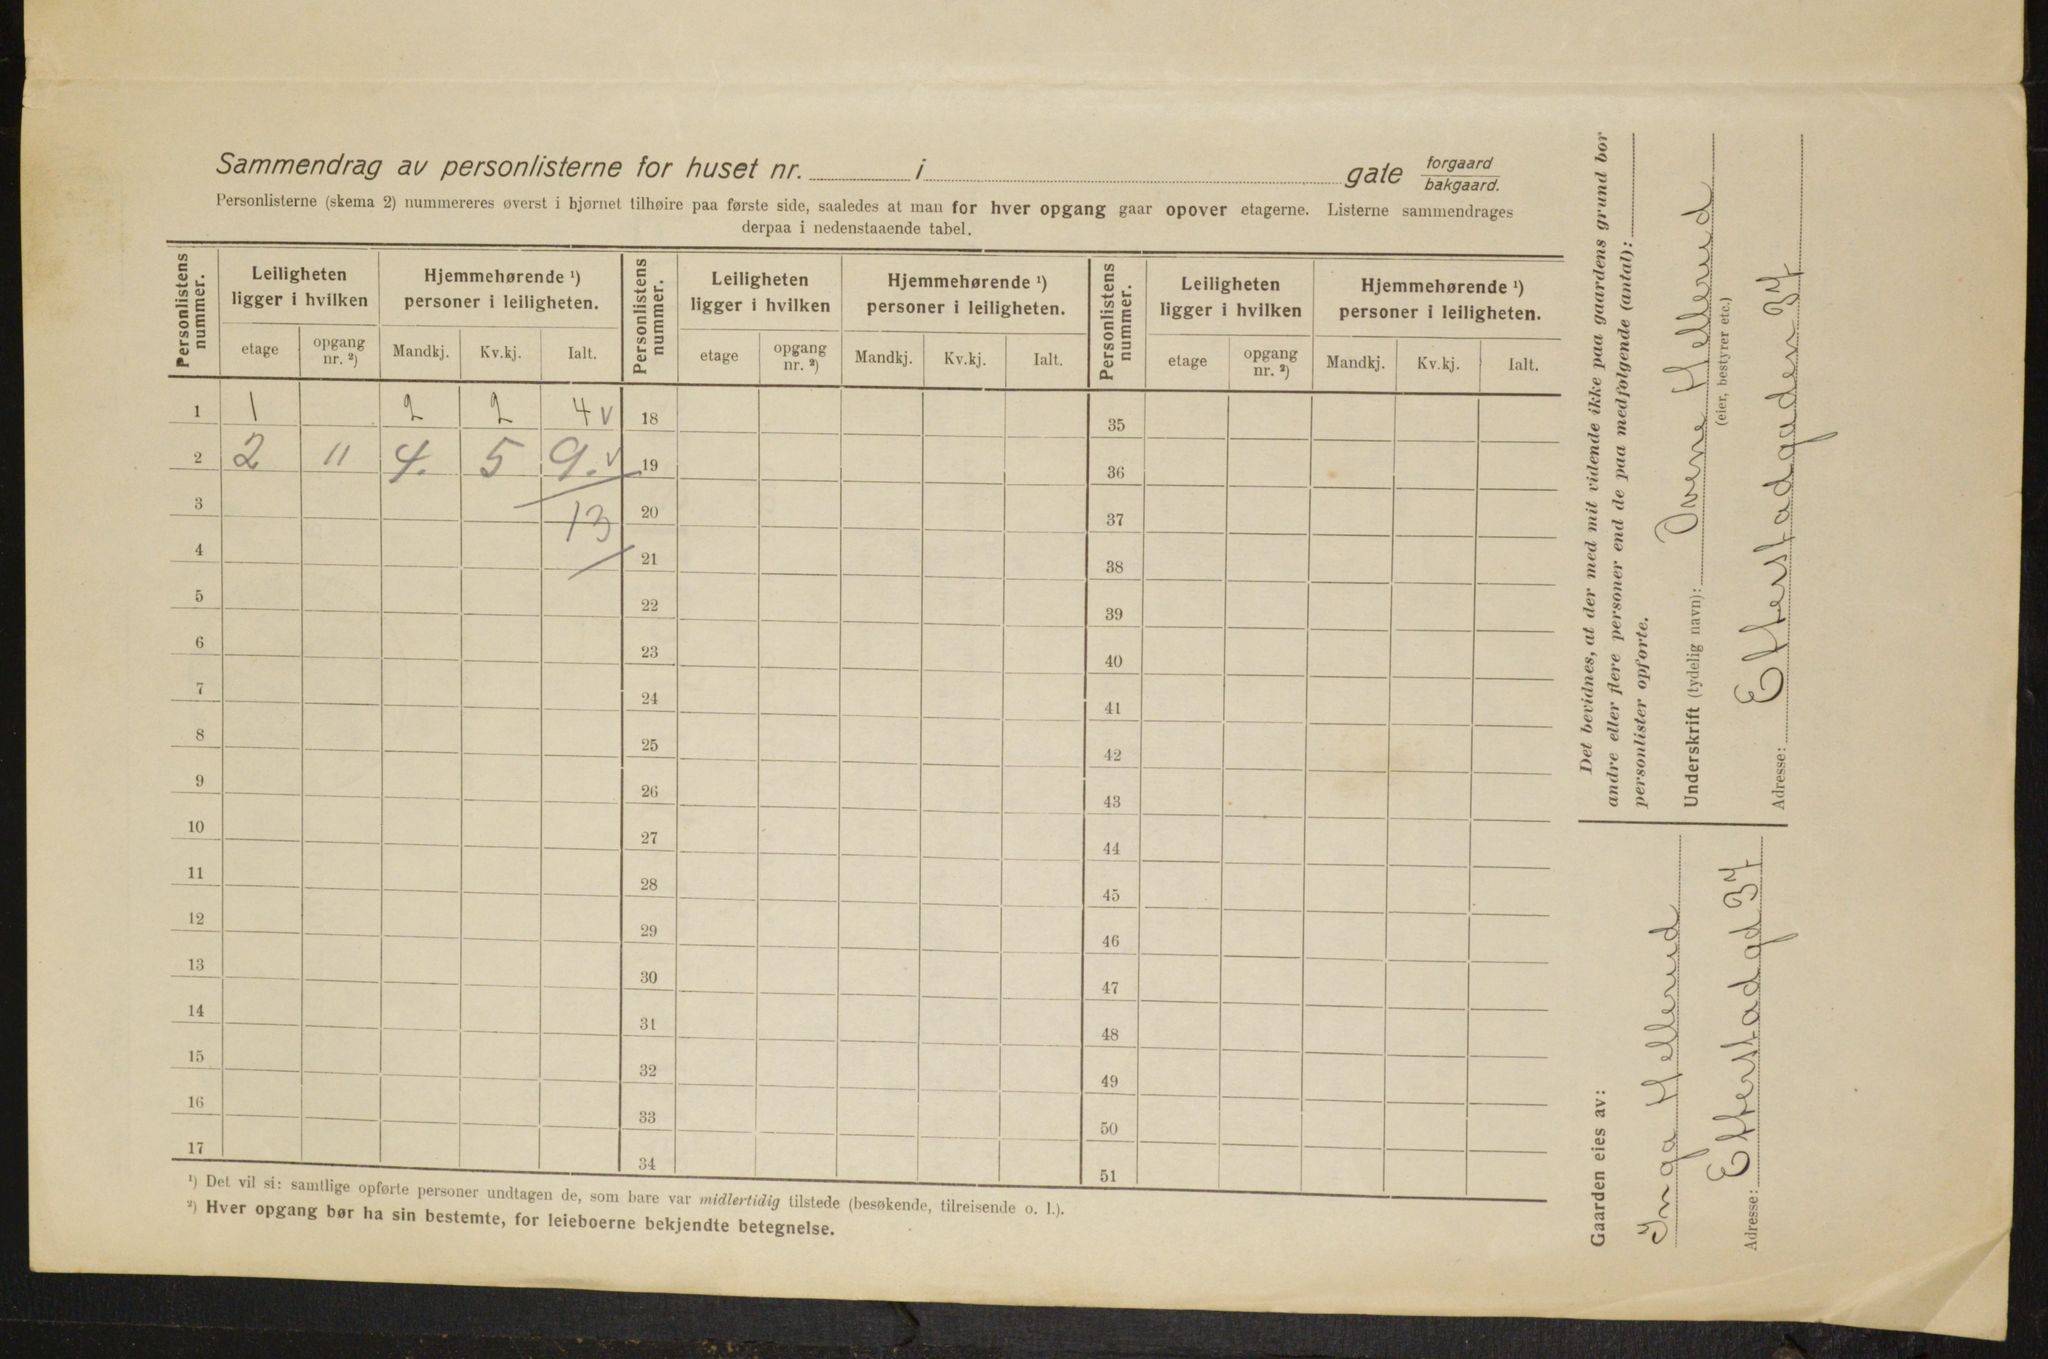 Sammendrag av personlisterne for huset nr. i gate forgaard
bakgaard.
Personlisterne (skema 2) nummereres øverst i hjørnet tilhøire paa første side, saaledes at man for hver opgang gaar opover etagerne. Listerne sammendrages
derpaa i nedenstaaende tabel.
Personlistens nummer. Leiligheten ligger i hvilken Hjemmehørende ¹) personer i leiligheten. Personlistens nummer. Leiligheten ligger i hvilken Hjemmehørende ¹) personer i leiligheten. Personlistens nummer. Leiligheten ligger i hvilken Hjemmehørende ¹) personer i leiligheten.
etage opgang nr. ²) Mandkj. Kv.kj. Ialt. etage opgang nr. ²) Mandkj. Kv.kj. Ialt. etage opgang nr. ²) Mandkj. Kv.kj. Ialt.
1 1 2 2 4 v 18 35
2 2 11 4. 5 9. v 19 36
3 13 20 37
4 21 38
5 22 39
6 23 40
7 24 41
8 25 42
9 26 43
10 27 44
11 28 45
12 29 46
13 30 47
14 31 48
15 32 49
16 33 50
17 34 51
¹) Det vil si: samtlige opførte personer undtagen de, som bare var midlertidig tilstede (besøkende, tilreisende o. l.).
²) Hver opgang bør ha sin bestemte, for leieboerne bekjendte betegnelse.
Det bevidnes, at der med mit vidende ikke paa gaardens grund bor
andre eller flere personer end de paa medfølgende (antal):
personlister opførte.
Underskrift (tydelig navn): Hellerud
(eier, bestyrer etc.)
Adresse: Etterstadgaden 37
Gaarden eies av:
Inga Hellerud
Adresse: Etterstadgd 37